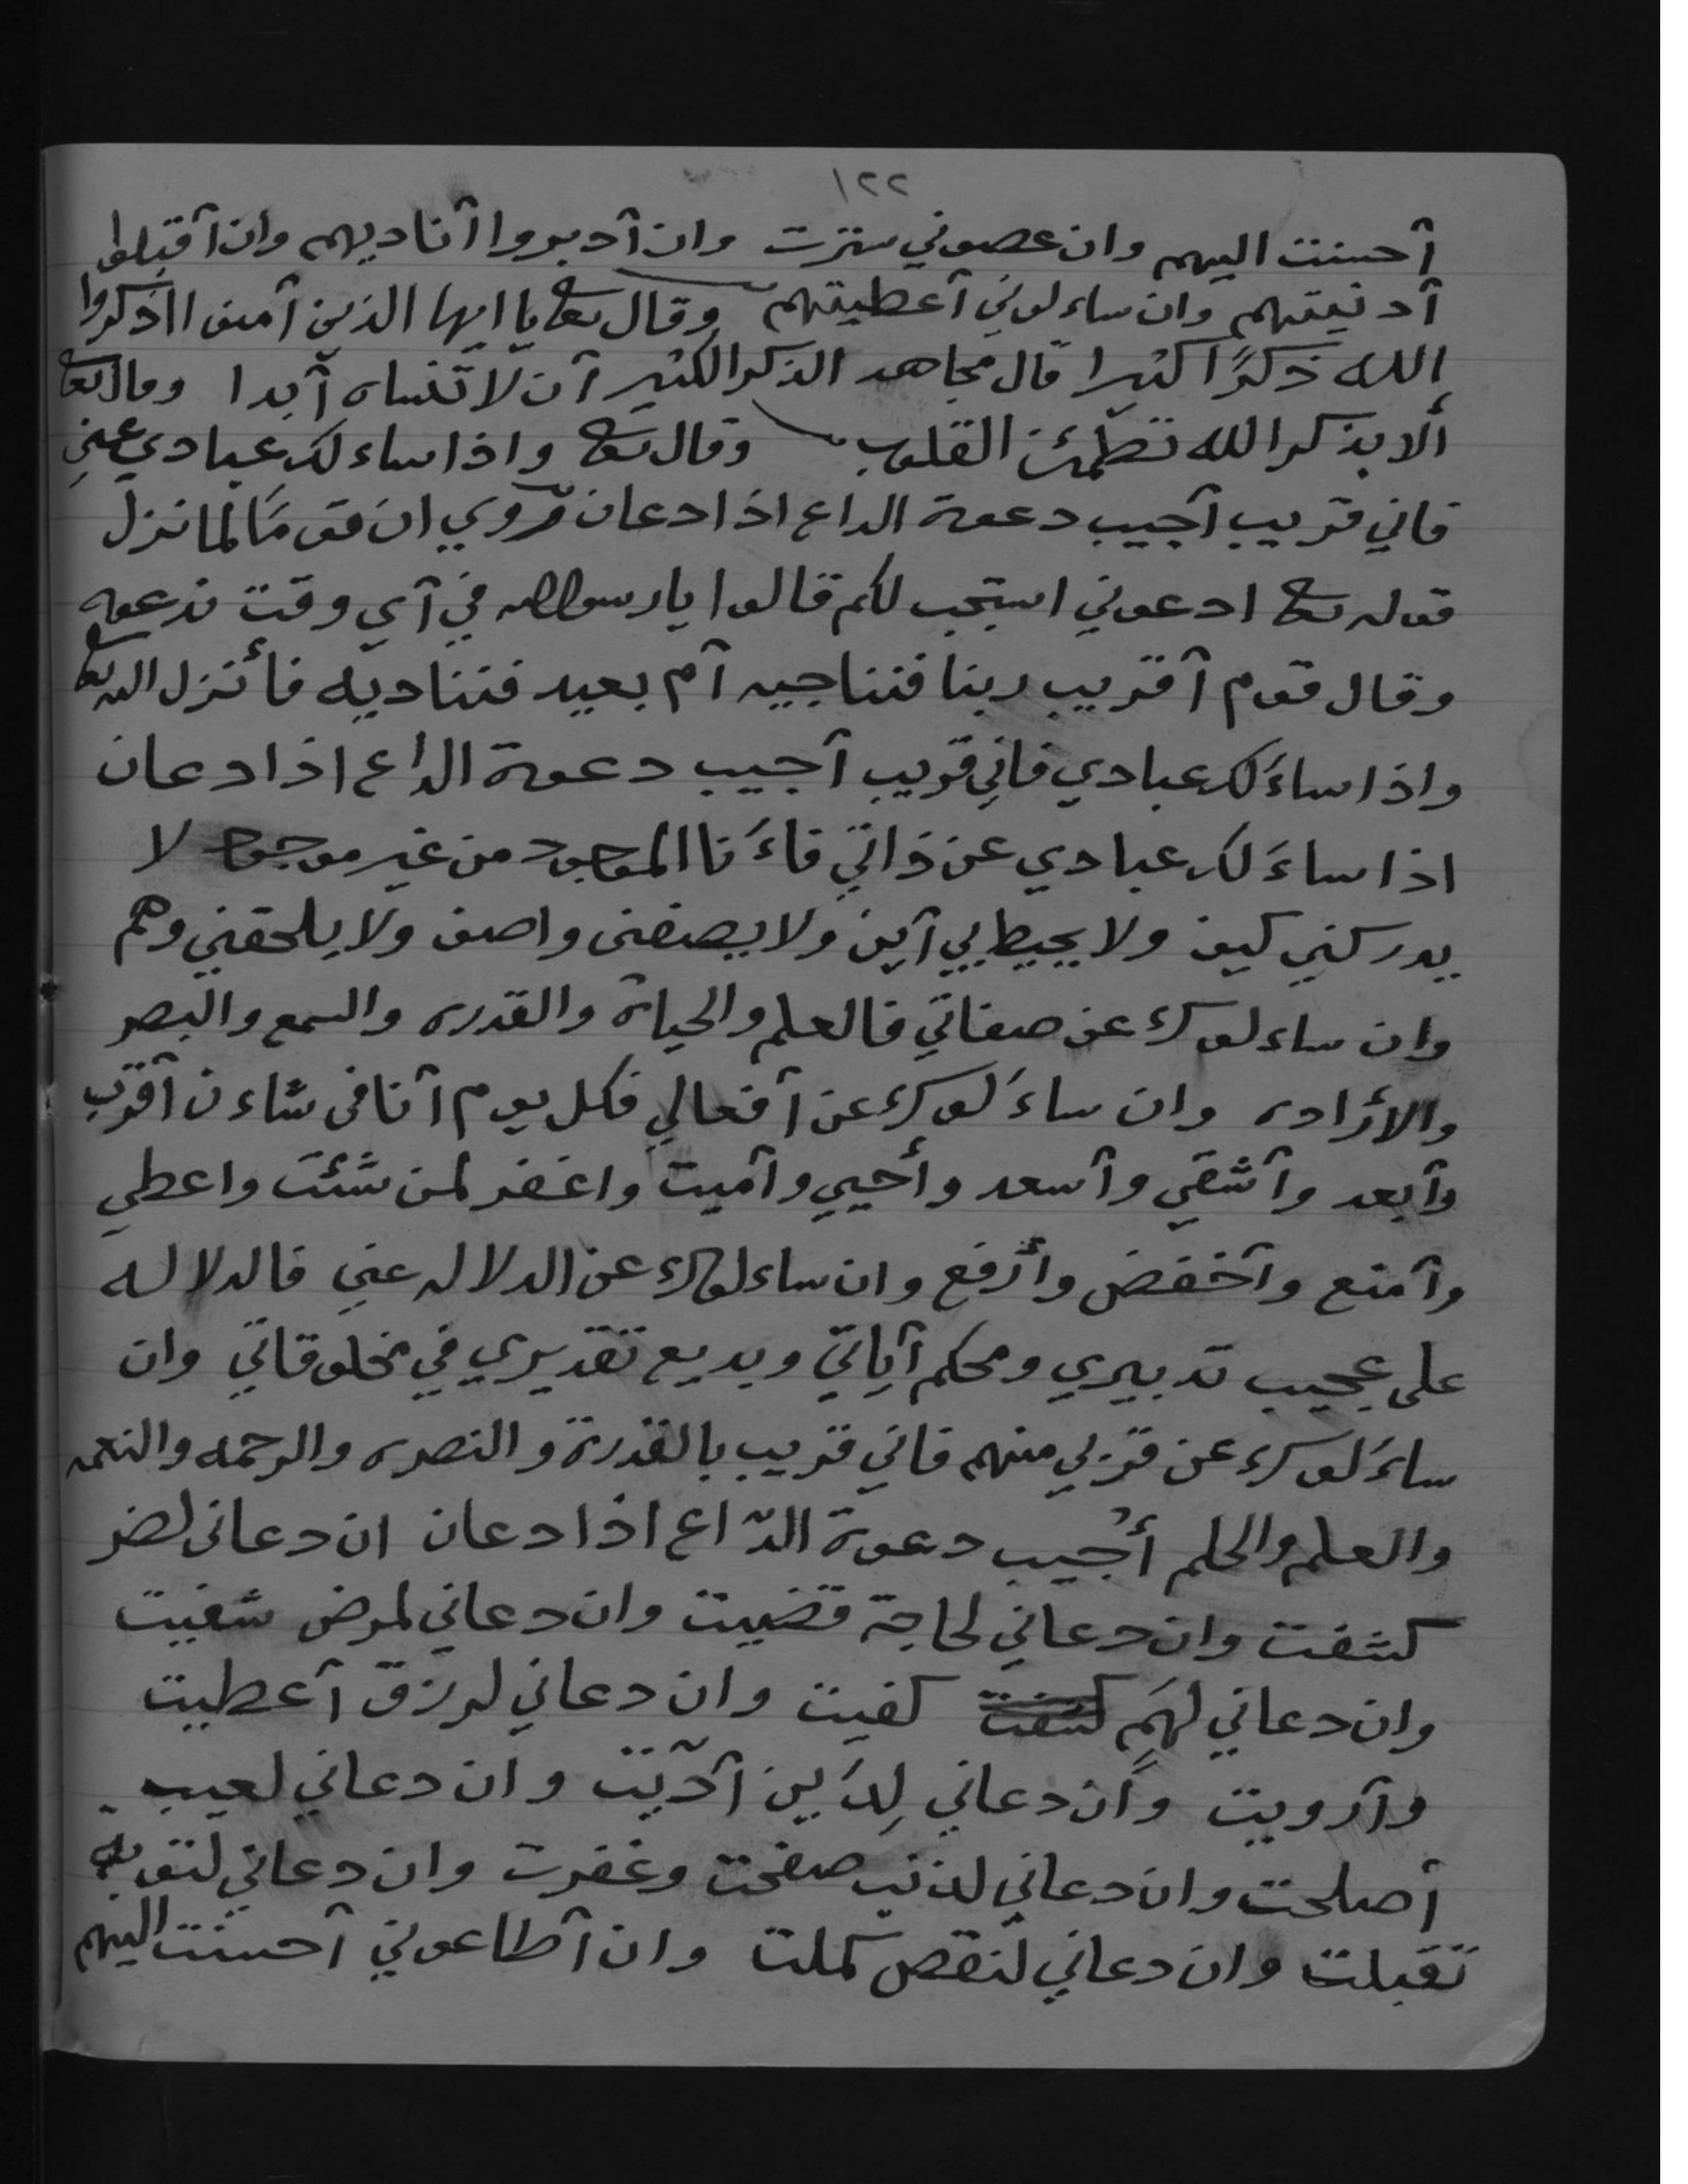 ١٢٢
أحسنت اليهم وان عصوني سترت وان أدبروا أناديهم وان أقبلوا
أدنيتهم وان ساءلوني أعطيتهم وقال تعا يا ايها الذين آمنوا اذكروا
الله ذكرًا كثيرا قال مجاهد الذكر الكثير أن لا تنساه أبدا وقال تعا
ألا بذكر الله تطمئن القلوب وقال تعا واذا ساءلك عبادي عني
فاني قريب أجيب دعوة الداع اذا دعان روي ان قومًا لما نزل
قوله تعا ادعوني استجب لكم قالوا يا رسول الله في أي وقت ندعوه
وقال قوم أقريب ربنا فنناجيه أم بعيد فنناديه فأنزل الله تعا
واذا ساءَلك عبادي فاني قريب أجيب دعوة الداع اذا دعان
اذا ساءَلك عبادي عن ذاتي فاءَنا الموجود من غير موجود لا
يدركني كيف ولا يحيط بي أين ولا يصفنى واصف ولا يلحقني وهم
وان ساءلوك عن صفاتي فالعلم والحياة والقدره والسمع والبصر
والأراده وان ساءَلوك عن أفعالي فكل يوم أنا فى شاءن أقرب
وأبعد وأشقي وأسعد وأحيي وأميت واغفر لمن شئت واعطي
وأمنع وأخفض وأرفع وان ساءلوك عن الدلاله عني فالدلاله
على عجيب تدبيري ومحكم آياتي وبديع تقديري في مخلوقاتي وان
ساءَلوك عن قربي منهم فاني قريب بالقدرة والنصره والرحمه والنعمه
والعلم والحلم أجيب دعوة الدّاع اذا دعان ان دعانى لضر
كشفت وان دعاني لحاجة قضيت وان دعاني لمرض شفيت
وان دعاني لهَمٍ كشفت كفيت وان دعاني لرزق أعطيت
وأرويت وان دعاني لِدَين أدّيت وان دعاني لعيب
أصلحت وان دعاني لذنب صفحت وغفرت وان دعاني لتوبة
تقبلت وان دعاني لنقص كملت وان أطاعوني أحسنت اليهم